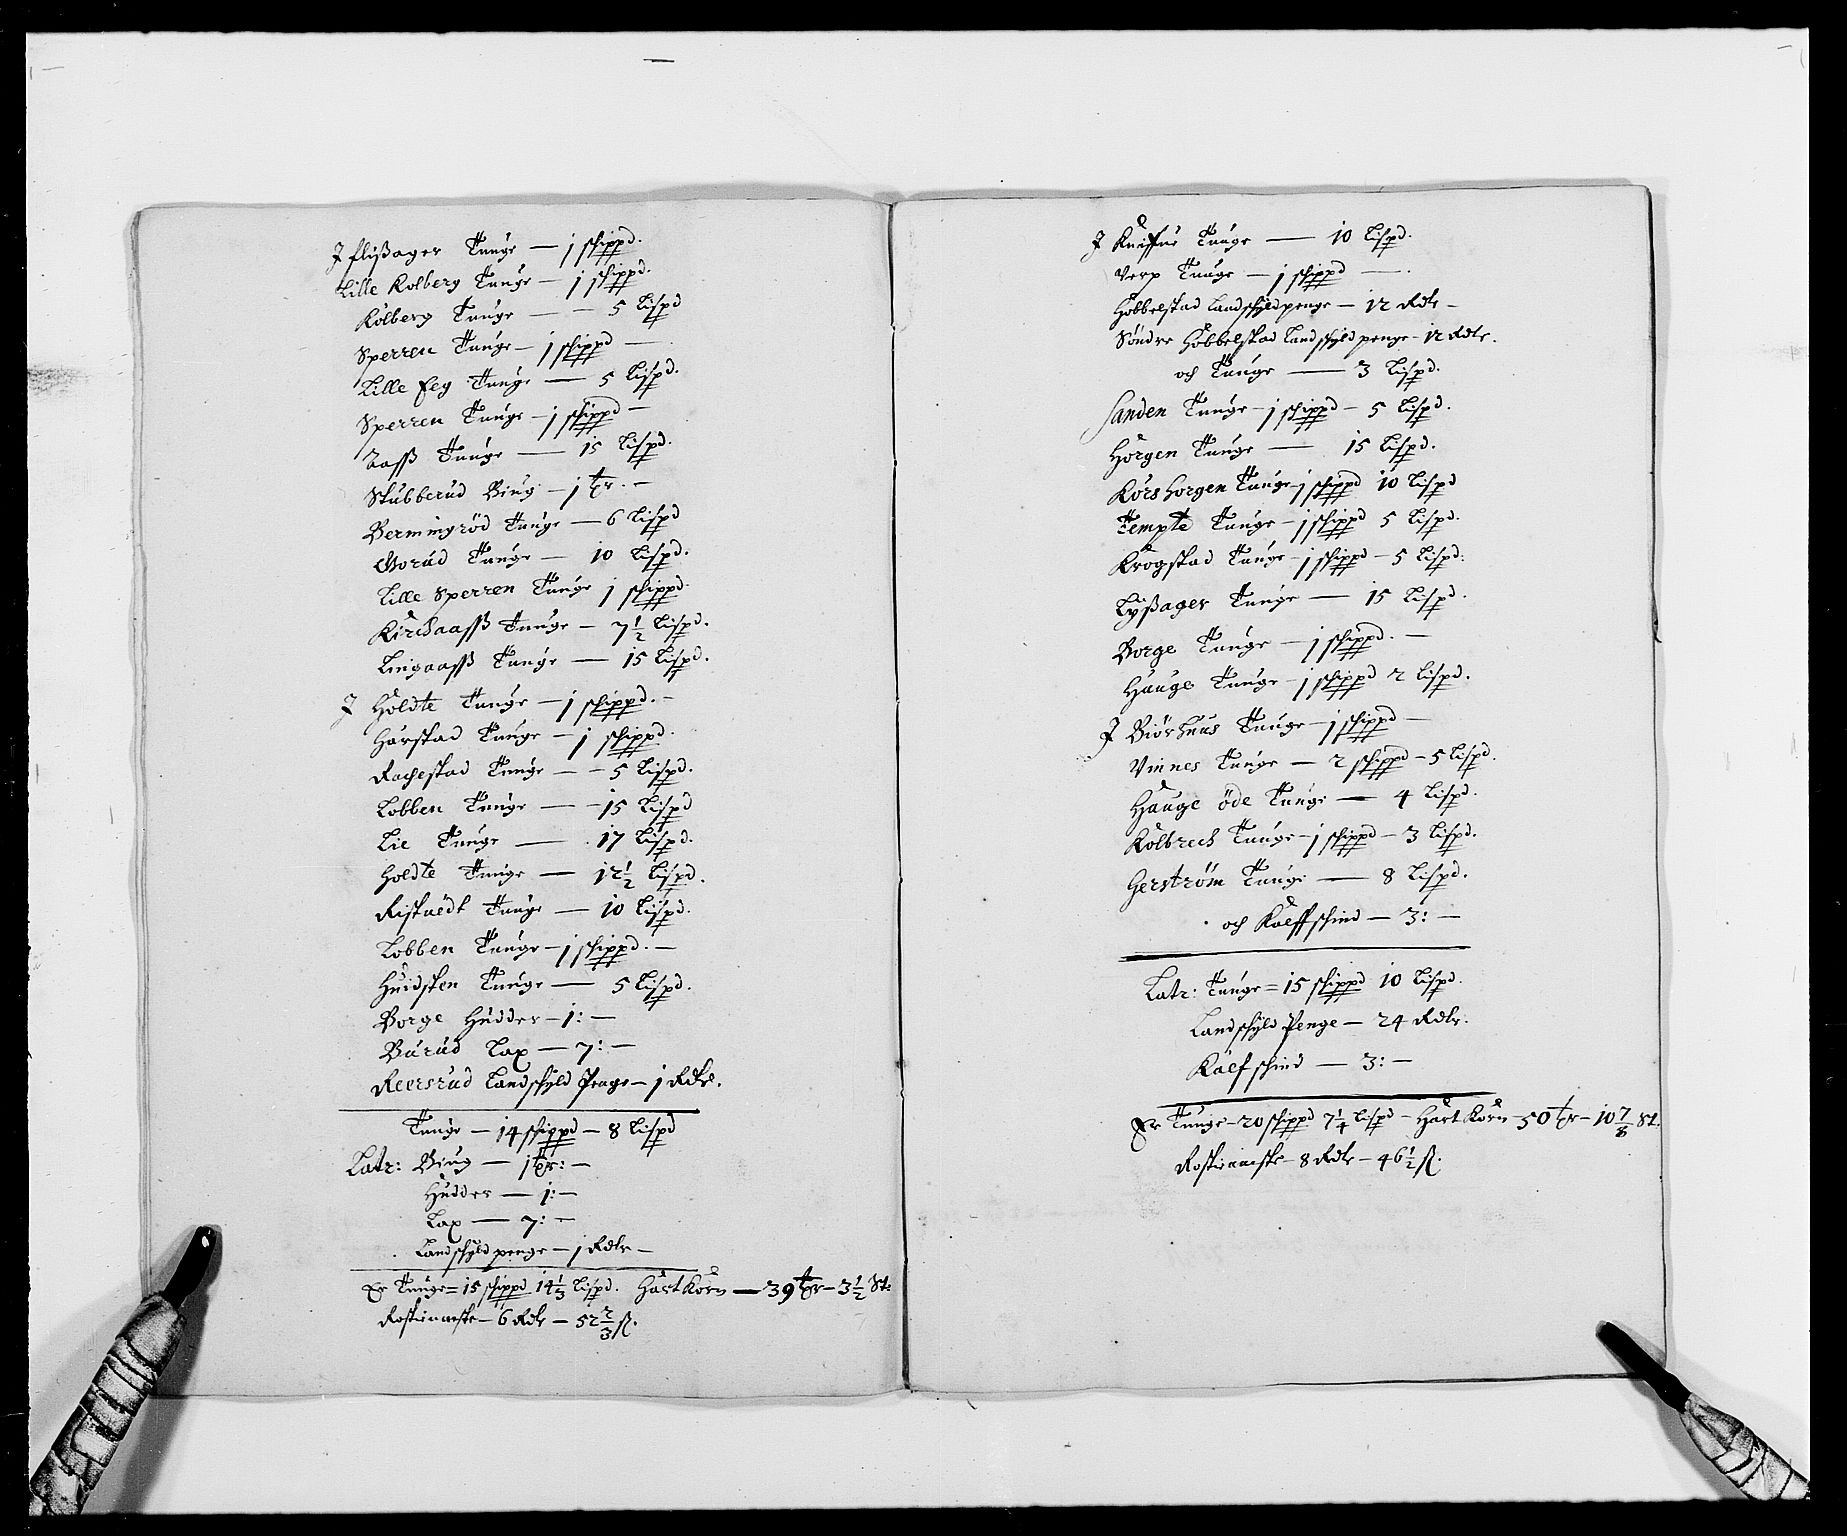 J flisßager Tunge — j schippd.
Lille Kolberg Tunge — j schippd.
Kolberg Tunge — — 5 Lispd
Sperren Tunge — j schippd —
Lille Eeg Tunge — 5 Lispd.
Sperren Tunge — j schippd —
Aasß Tunge — 15 Lispd.
Stubberud Biug — j tr. —
Bermingröd Tunge — 6 Lispd
Gorud Tunge — 10 Lispd.
Lille Sperren Tunge j schippd.
Kirchaasß Tunge — 7½ Lispd.
Lingaasß Tunge — 15 Lispd.
J Holdte Tunge — j schippd. —
Harstad Tunge — j schippd.
Rachestad Tunge — – 5 Lispd.
Lobben Tunge — – 15 Lispd
Lie Tunge — 17 Lispd.
Holdte Tunge — 12½ Lispd.
Ristuedt Tunge — 10 Lispd.
Lobben Tunge — j schippd. —
Huidsten Tunge — 5 Lispd.
Borge Hudder — 1: —
Burud Lax — 7: —
Reersrud Landschyld Penge — j Rdlr.
Tunge — 14 schippd — 8 Lispd
Latr: Biug — 1 tr: —
Hudder — 1: —
Lax — 7: —
Landschyld penge — j Rdlr —
Er Tunge = 15 schippd 14⅓ Lispd. Hartkorn — 39 tr — 3½ St.
Rostieneste — 6 Rdlr — 52⅔ ß.
J Kniffue Tunge — 10 Lispd.
Verp Tunge — j schippd —
Hobbelstad Landschyldpenge — 12 Rdlr —
Söndre Hobbelstad Landschyld penge – 12 Rdlr.
och Tunge — 3 Lispd.
Sanden Tunge – j schippd – 5 Lispd.
Horgen Tunge — 15 Lispd.
Korshorgen Tunge – j schippd 10 Lispd
Tempte Tunge – j schippd 5 Lispd.
Krogstad Tunge – j schippd – 5 Lispd:
Lysßager Tunge — 15 Lispd.
Borge Tunge — j schippd. —
Hauge Tunge – j schippd 2 Lispd.
J Biörhuus Tunge – j schippd —
Vinnes Tunge — 2 schippd – 5 Lispd.
Hauge öde Tunge — 4 Lispd.
Kolbrech Tunge – j schippd – 3 Lispd.
Gerström Tunge — 8 Lispd.
och Kalffschind — 3: —
Latr: Tunge = 15 schippd 10 Lispd.
Landschyld Penge — 24 Rdlr.
Kalfschind — 3: —
Er Tunge – 20 schippd 7¼ Lispd – Hart Korn – 50 tr – 10⅞ St.
Rostieneste – 8 Rdlr – 46½ ß.